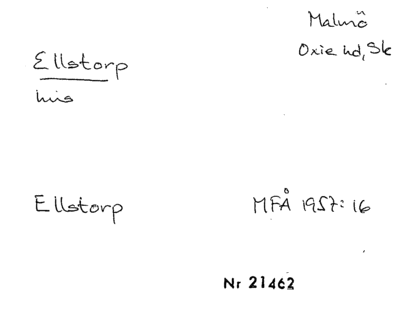 Malmö
Oxie hd, Sk
Ellstorp
hus
Ellstorp
MFÅ 1957: 16
Nr 21462